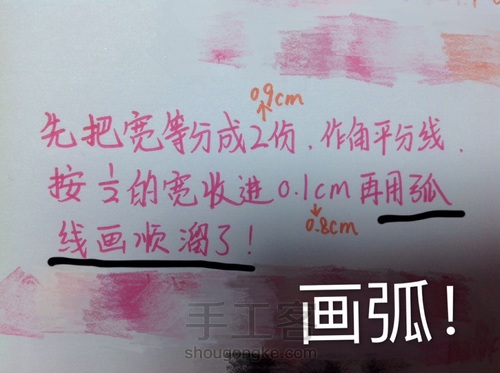 0.9cm
先把宽等分成2份,作角平分线.
按½的宽收进0.1cm再用弧
0.8cm
线画顺溜了!
画弧!
手工客
shougongke.com